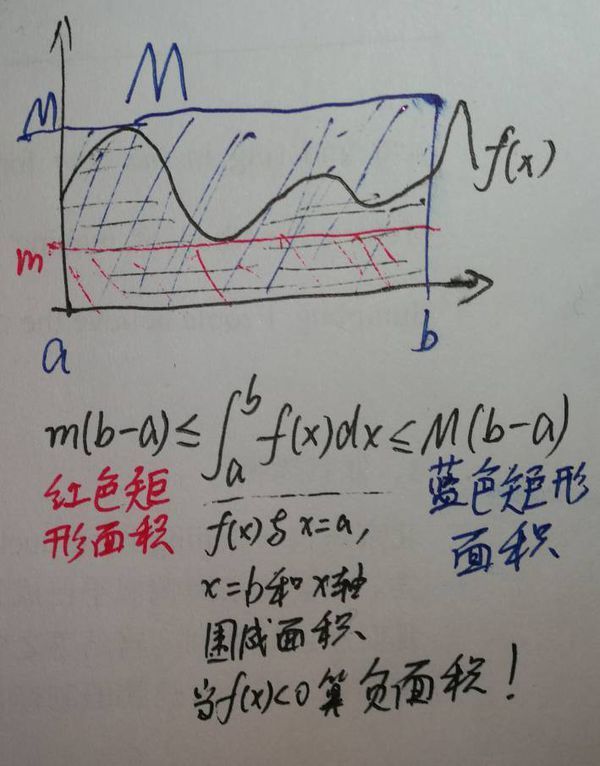 M
M
f(x)
m
a
b
m(b-a)≤∫_a^b f(x)dx≤M(b-a)
红色矩
形面积
f(x)与x=a,
x=b和x轴
围成面积、
当f(x)<0算负面积!
蓝色矩形
面积